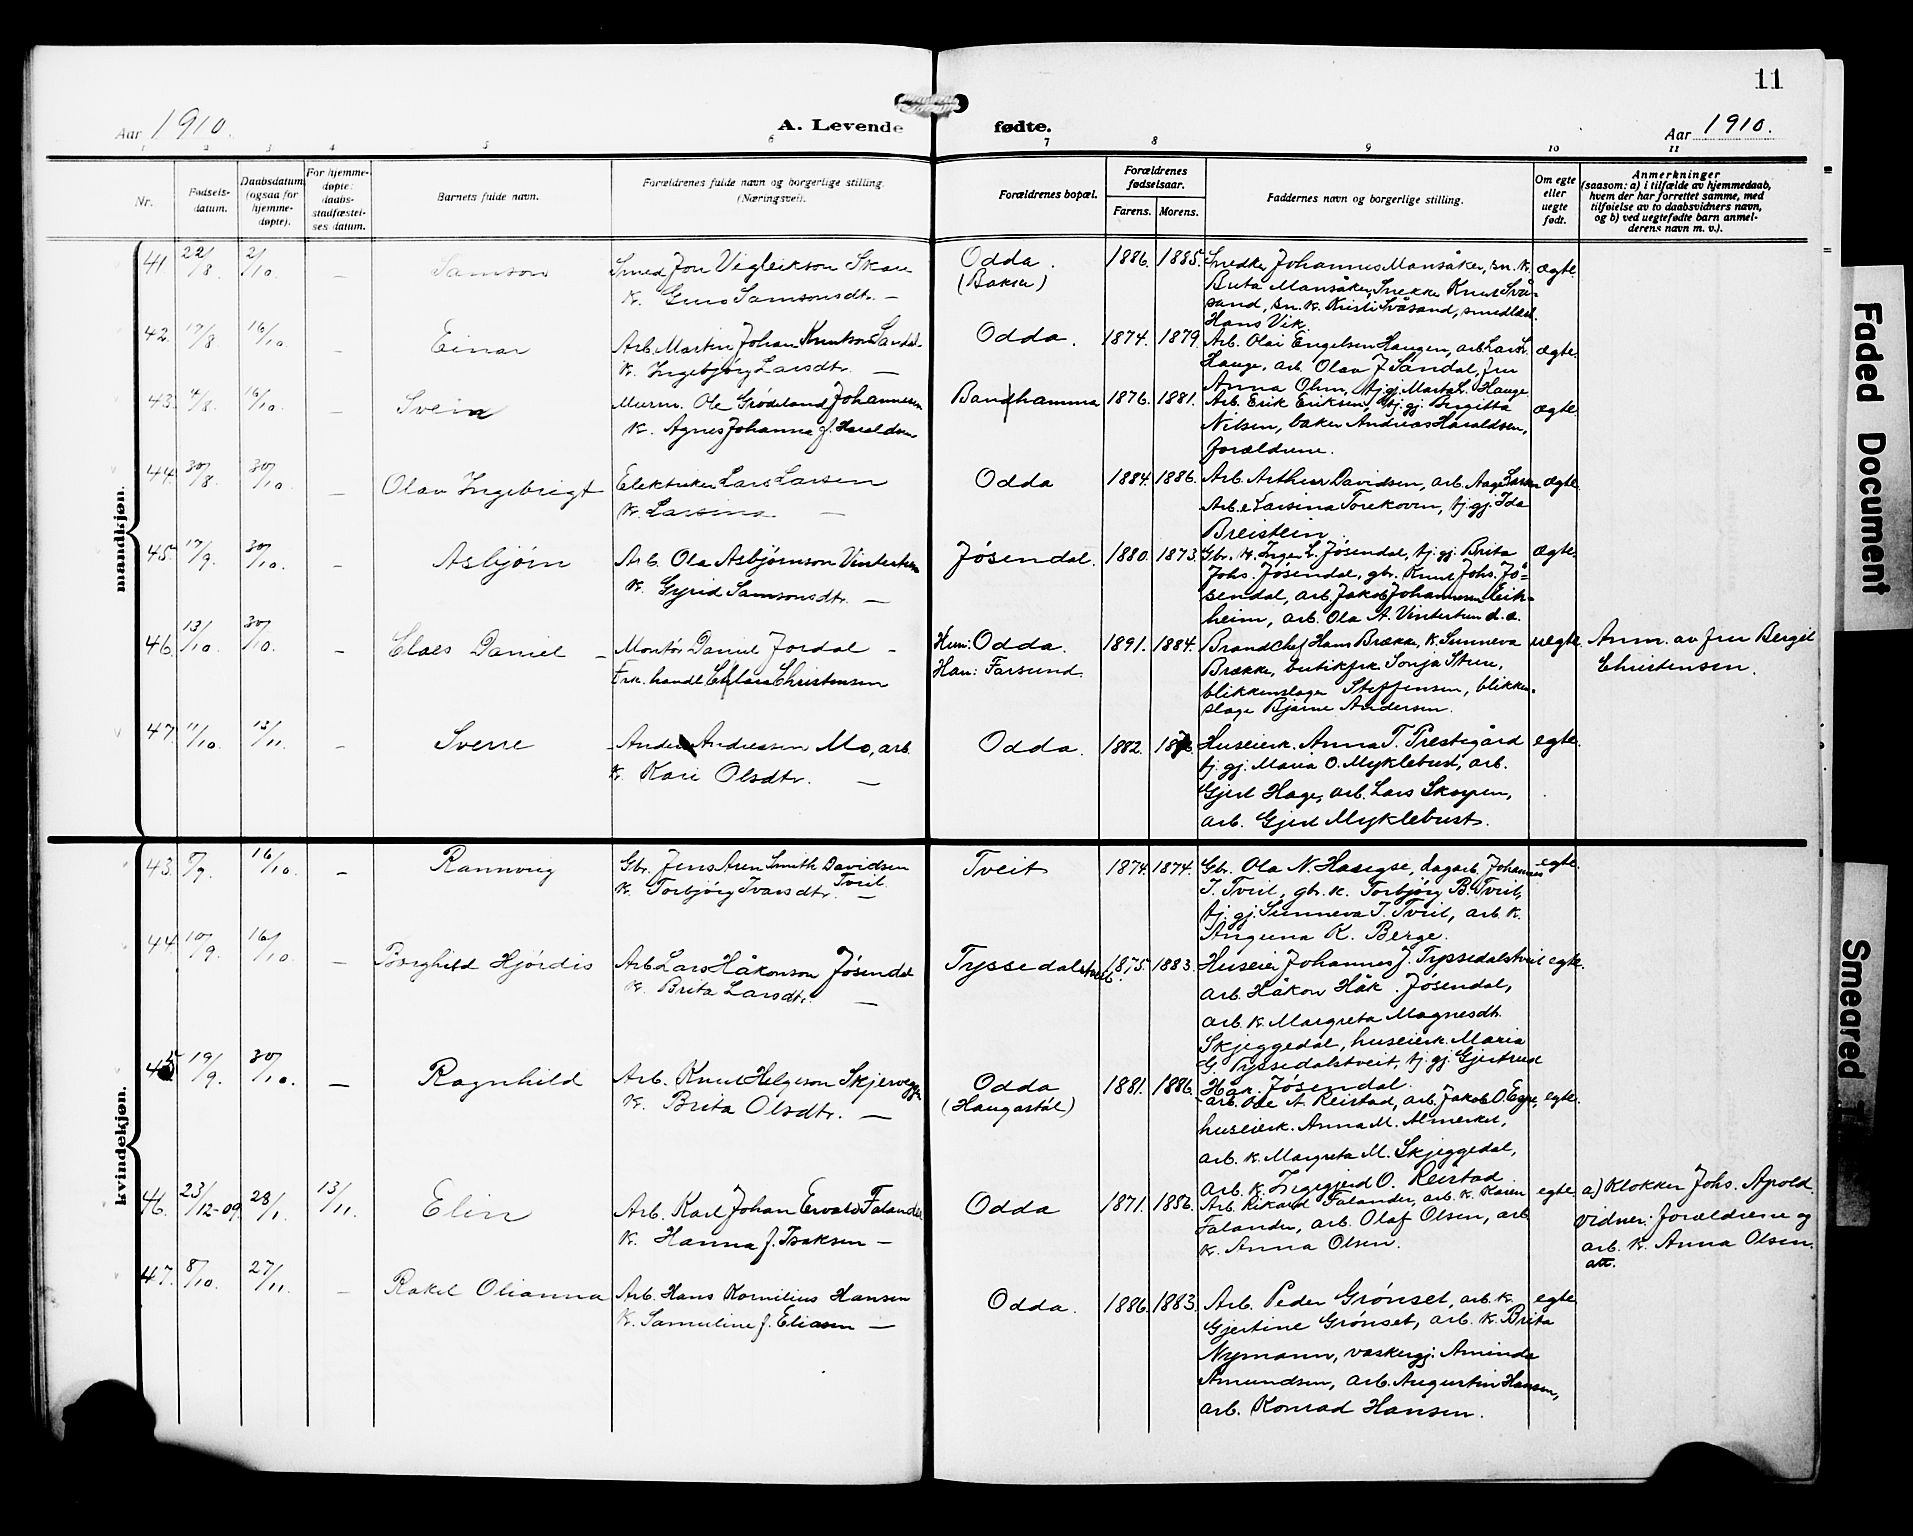 11
Aar 1910.
A. Levende fødte.
Aar 1910.
1 2 3 4 5 6 7 8 9 10 11
Nr.
Fødsels-
datum.
Daabsdatum
(ogsaa for
hjemme-
døpte).
For hjemme-
døpte:
daabs-
stadfæstel-
ses datum.
Barnets fulde navn.
Forældrenes fulde navn og borgerlige stilling.
(Næringsvei).
Forældrenes bopæl.
Forældrenes
fødselsaar.
Farens. Morens.
Faddernes navn og borgerlige stilling.
Om egte
eller
uegte
født.
Anmerkninger
(saasom: a) i tilfælde av hjemmedaab,
hvem der har forrettet samme, med
tilføielse av to daabsvidners navn,
og b) ved uegtefødte barn anmel-
derens navn m. v.).
mandkjøn.
41 22/8 2/10. - Samson
Smed Jon Vigleikson Skare
K. Guro Samsonsdtr. -
Odda.
(Bakka)
1886. 1885.
Snedker Johannes Mansåker, sn. k.
Brita Mansåker, Snekker Knut Svå-
sand, sn. k. Kristi Svåsand, smedlærl.
Hans Vik.
ægte
42. 17/8 16/10. - Einar
Arb. Martin Johan Knutson Sandal
K. Ingebjørg Larsdtr. -
Odda.
1874. 1879.
Arb. Olai Engelsen Haugen, arb. Lars L.
Hauge, arb. Olav J. Sandal, fru
Anna Ohm, tj. gj. Marta L. Hauge
ægte
43. 4/8. 16/10. - Svein
Murm. Ole Grødeland Johannesen
K. Agnes Johanna f. Haraldsen
Bandhamma
1876. 1881.
Arb. Erik Eriksen, tj. gj. Birgitta
Nilsen, baker Andreas Haraldsen,
forældrene.
ægte
44. 30/8. 30/10. - Olav Ingebrigt
Elektriker Lars Larsen
K. Larsine -
Odda
1884. 1886.
Arb. Arthur Davidsen, arb. Aage Larsen
Arb. k. Larsina Torekoven, tj. gj. Ida
Breistein.
ægte
45. 17/9. 30/10. - Asbjørn
Arb. Ola Asbjørnson Vintertun
K. Gyrid Samsonsdtr. -
Jøsendal.
1880. 1873.
Gbr. k. Inger L. Jøsendal, tj. gj. Brita
Johs. Jøsendal, gbr. Knut Johs. Jø-
sendal, arb. Jakob Johannesen Eik-
heim, arb. Ola A. Vintertun d. a.
ægte
46. 13/10. 30/10. - Claes Daniel -
Montør Daniel Jordal -
Frk. handl. Chlara Christensen
Hun: Odda.
Han: Farsund.
1891. 1884.
Brandchef Hans Brække, k. Sunneva
Brække, butikfrk. Sonja Strue,
blikkenslager Steffensen, blikken-
slager Bjarne Andersen.
uegte
Anm. av fru Bergit
Christensen.
47. 11/10. 13/11. - Sverre
Anders Andreassen Mo, arb.
K. Kari Olsdtr. -
Odda.
1882.
Huseierk. Anna T. Prestegård
tj. gj. Maria O. Myklebust, arb.
Gjert Hage, arb. Lars Skorpen,
arb. Gjert Myklebust.
egte.
kvindekjøn.
43. 5/9. 16/10. - Rannveig
Gbr. Jens Aven Smith Davidsen
Tveit.
K. Torbjørg Ivarsdtr. -
Tveit
1874. 1874.
Gbr. Ola N. Hasegse, dagarb. Johannes
I. Tveit, gbr. k. Torbjørg B. Tveit,
tj. gj. Sunneva I. Tveit, arb. k.
Anguna K. Berge.
egte.
44. 10/9. 16/10. - Borghild Hjørdis
Arb. Lars Håkonson Jøsendal
K. Brita Larsdtr. -
Tyssedalstveit.
1875. 1883.
Huseier Johannes J. Tyssedalstveit
arb. Håkon Håk. Jøsendal,
arb. k. Margreta Magnesdt.
Skjeggedal, huseierk. Maria
G. Tyssedalstveit, tj. gj. Gjertrud
Håk. Jøsendal.
egte.
45 19/9. 30/10. - Ragnhild
Arb. Knut Helgeson Skjervegge
K. Brita Olsdtr. -
Odda
(Haugastøl)
1881. 1886.
arb. Ole A. Reistad, arb. Jakob O. Egne,
huseierk. Anna M. Almerket,
arb. k. Margreta M. Skjeggedal,
arb. k. Ingegjerd O. Reistad.
egte.
46. 23/12-09 28/1. 13/11. Elin
Arb. Karl Johan Ervald Falander
K. Hanna f. Isaksen -
Odda
1871. 1886.
Arb. Rikard Falander, arb. k. Karen
Falander, arb. Olaf Olsen, arb.
k. Anna Olsen.
egte
a) Klokker Johs. Apold.
vidner: forældrene og
arb. k. Anna Olsen.
att.
47. 8/10. 27/11. - Rakel Olianna
Arb. Hans Kornelius Hansen
K. Samueline f. Eliasen -
Odda.
1886. 1883.
Arb. Peder Grønset, arb. k.
Gjertine Grønset, arb. k. Brita
Nymann, vaskergj. Aminda
Amundsen, arb. Augustin Hansen,
arb. Konrad Hansen.
egte
Faded Document
Smeared